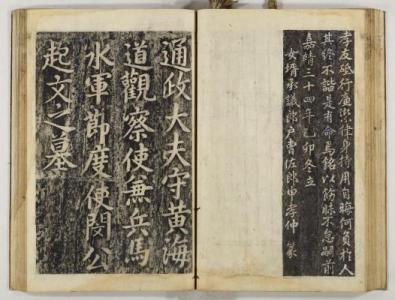 孝友至行廉潔律身持用自晦何負於人
其終不諧是有命焉銘以飭時不忘嗣前
嘉靖三十四年乙卯冬立
女壻承議郎戶曹佐郎申孝仲篆
通政大夫守黃海
道觀察使兼兵馬
水軍節度使閔公
起文之墓